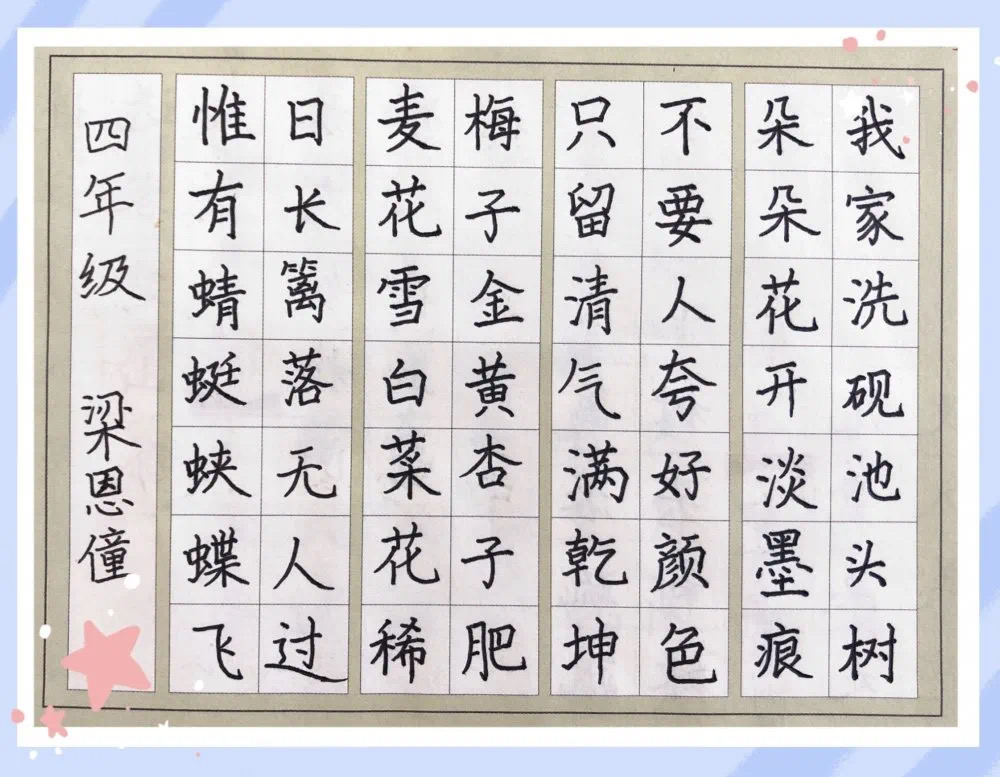 我家洗砚池头树
朵朵花开淡墨痕
不要人夸好颜色
只留清气满乾坤
梅子金黄杏子肥
麦花雪白菜花稀
日长篱落无人过
惟有蜻蜓蛱蝶飞
四年级 梁恩僮